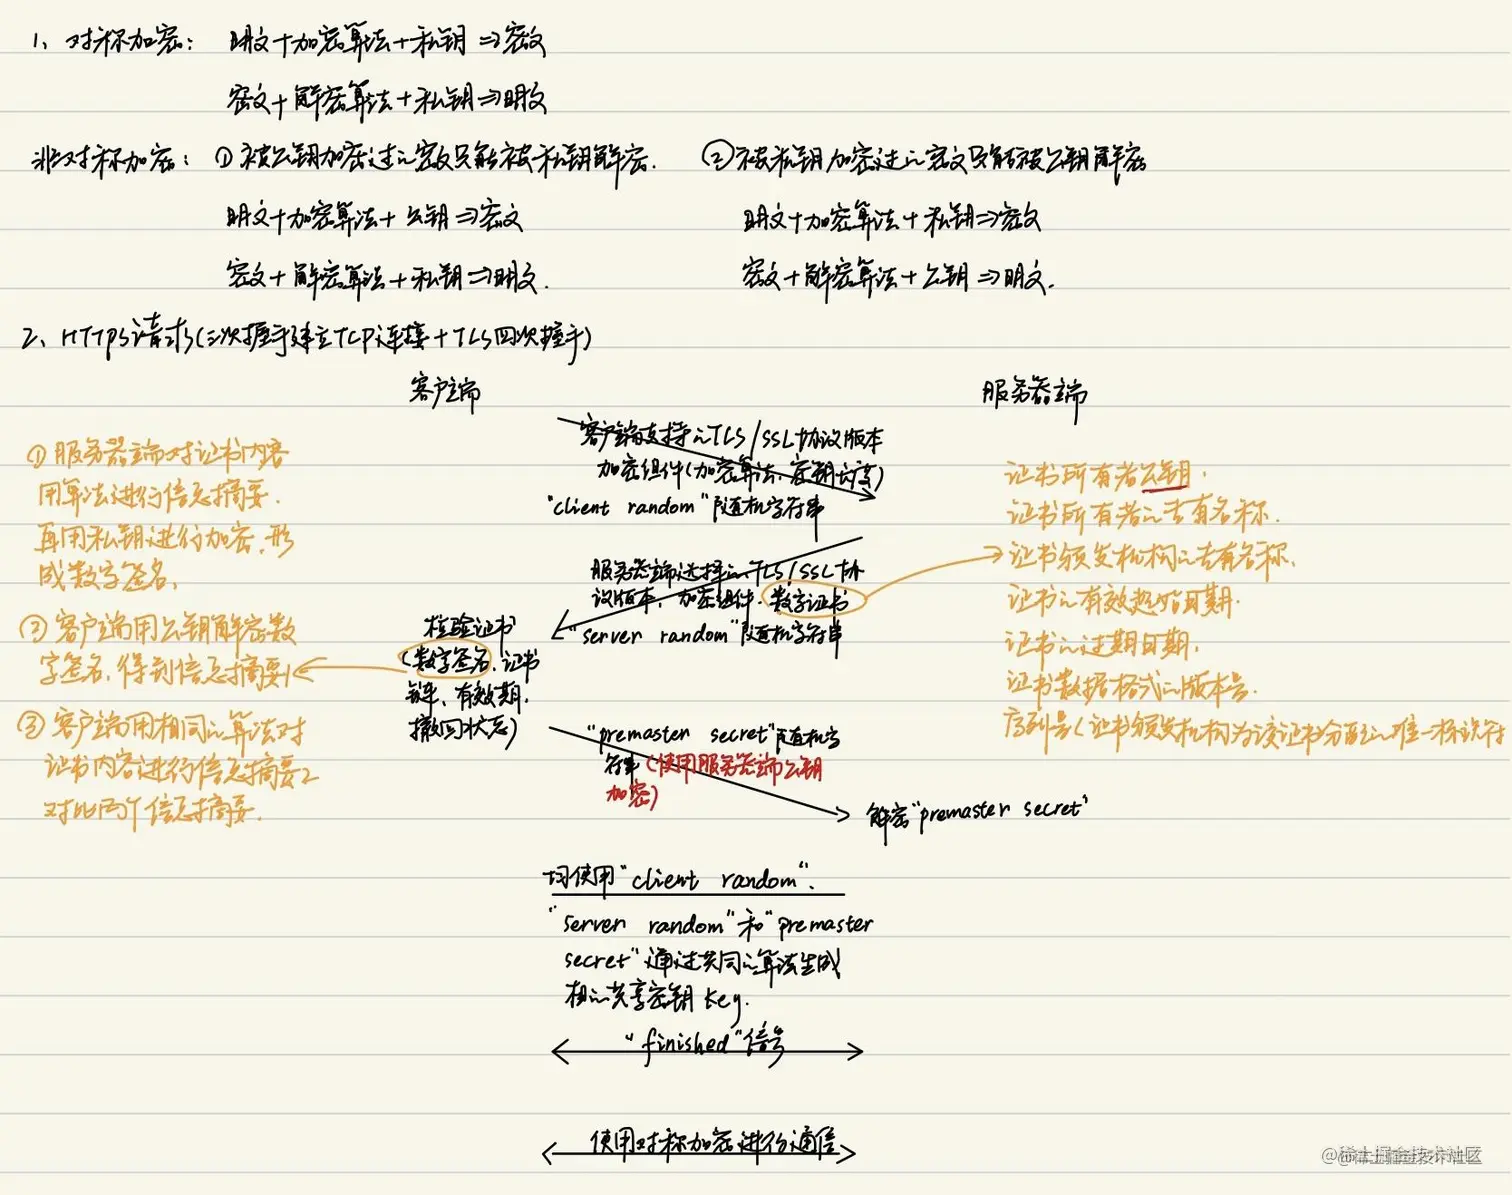 1、对称加密： 明文+加密算法+私钥⇒密文
密文+解密算法+私钥⇒明文
非对称加密：①被公钥加密过的密文只能被私钥解密. ②被私钥加密过的密文只能被公钥解密
明文+加密算法+公钥⇒密文 明文+加密算法+私钥⇒密文
密文+解密算法+私钥⇒明文. 密文+解密算法+公钥⇒明文.
2、HTTPS请求(三次握手建立TCP连接+TLS四次握手)
客户端
服务器端
①服务器端对证书内容
用算法进行信息摘要.
再用私钥进行加密,形
成数字签名、
②客户端用公钥解密数
字签名,得到信息摘要1
③客户端用相同的算法对
证书内容进行信息摘要2
对比两个信息摘要.
客户端支持的TLS/SSL协议版本
加密组件(加密算法、密钥长度)
"client random"随机字符串
服务器端选择的TLS/SSL协
议版本、加密组件、数字证书
"server random"随机字符串
证书所有者公钥.
证书所有者的专有名称.
证书颁发机构的专有名称.
证书的有效起始日期.
证书的过期日期.
证书数据格式的版本号.
序列号(证书颁发机构为该证书分配的唯一标识符
校验证书
(数字签名、证书
链、有效期、
撤回状态)
"premaster secret"随机字
符串(使用服务器端公钥
加密)
解密"premaster secret"
均使用"client random".
"server random"和"premaster
secret"通过共同的算法生成
相的共享密钥key.
"finished"信号
使用对称加密进行通信
@稀土掘金技术社区